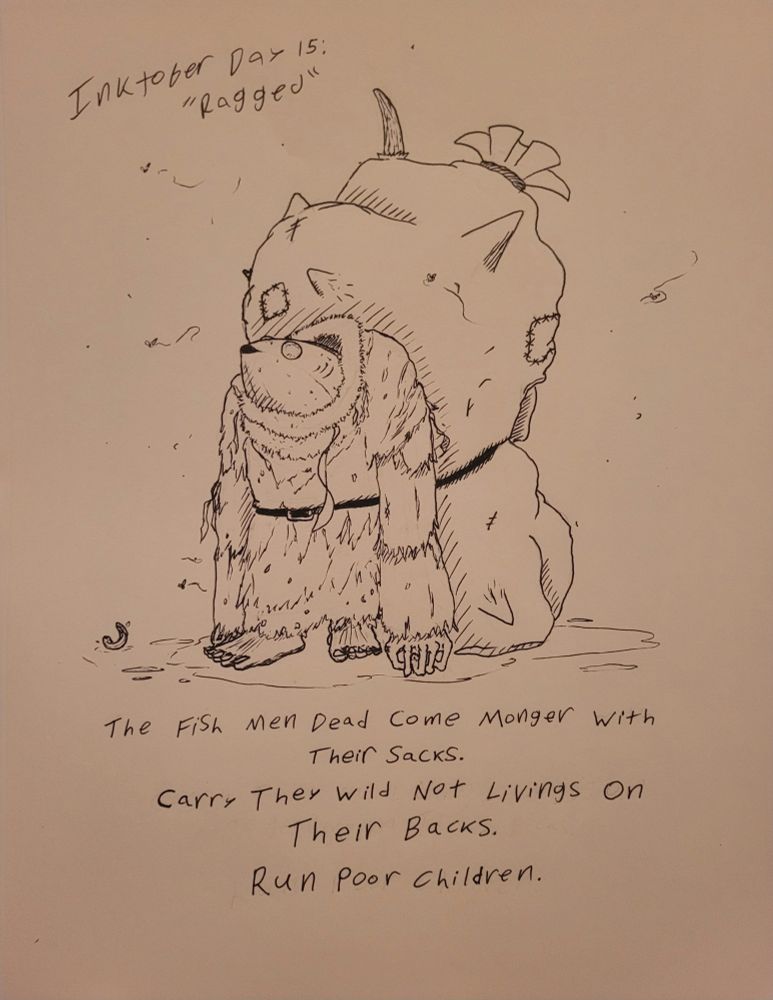 Inktober Day 15:
"Ragged"
The Fish Men Dead Come Monger With
Their Sacks.
Carry They Wild Not Livings On
Their Backs.
Run Poor Children.